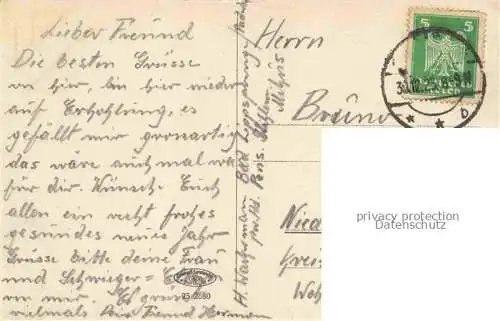 Lieber Freund
Die besten Grüsse
von hier, bin hier wieder
auf Erhohlung, es
gefällt mir grossartig
das wäre auch mal was
für dir. Wünsche Euch
allen ein recht frohes
gesundes neues Jahr
Grüsse bitte deine Frau
und Schwieger=
von mir. Es grüsst
vielmals Dein Freund Hermann
25 2680
H. Wachsmann Bad Lippspringe
Herrn
Bruno
5
5
30.12.25
b
privacy protection
Datenschutz